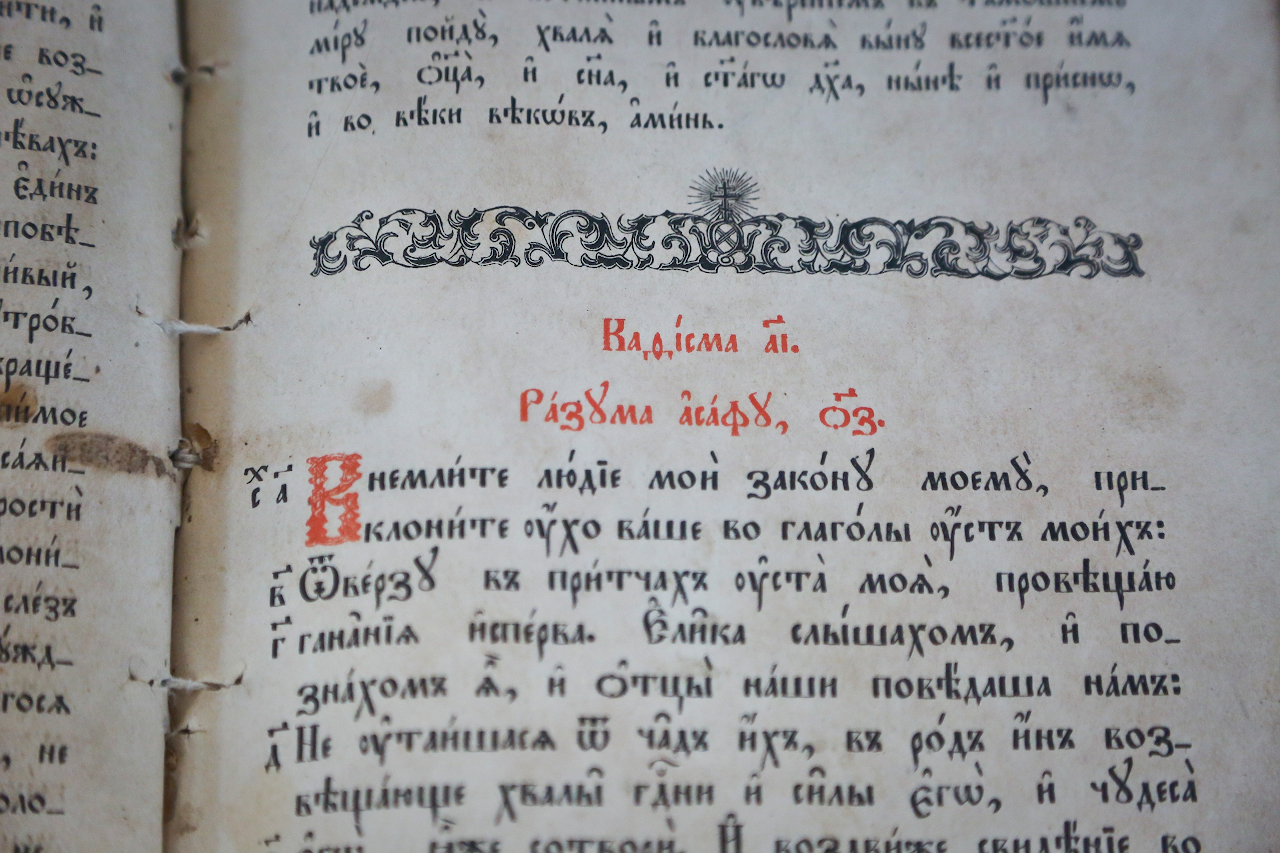 нти, и҆
е воз_
ѡ҆сꙋж_
ѣ́вахъ:
є҆ди́нъ
повѣ_
и́вый,
тро́б_
краше́_
и́мое
ростѝ
мони́_
сле́зъ
ꙋжд_
гося
, не
оло_
мі́рꙋ пойдꙋ̀, хваля̀ и҆ благословѧ̀ вы́нꙋ всест҃о́е и҆́мѧ
твоѐ, ѻ҆ц҃а̀, и҆ сн҃а, и҆ ст҃а́гѡ дх҃а, ны́нѣ и҆ при́снѡ,
и҆ во вѣ́ки вѣкѡ́въ, а҆ми́нь.
Каѳі́сма а҃і.
Ра́зꙋма а҆са́фꙋ, ѻ҃з.
х҃с а҃ Внемли́те лю́дїе моѝ зако́нꙋ моемꙋ̀, при_
клони́те ᲂу҆́хо ва́ше во глаго́лы ᲂу҆́стъ мои́хъ:
в҃ Ѿве́рзꙋ въ при́тчахъ ᲂу҆ста̀ моѧ̀, провѣща́ю
г҃ гана̑нїѧ и҆спе́рва. Є҆ли̑ка слы́шахомъ, и҆ по_
зна́хомъ ѧ҆̀, и҆ ѻ҆тцы̀ на́ши повѣ́даша на́мъ:
д҃ Не ᲂу҆таи́шасѧ ѿ ча̑дъ и҆́хъ, въ ро́дъ и҆́нъ воз_
вѣща́юще хвалы̑ гдⷭ҇ни и҆ си̑лы є҆гѡ̀, и҆ чꙋдеса̀
сотворѝ. И҆ воздви́же свидѣ́нїе во